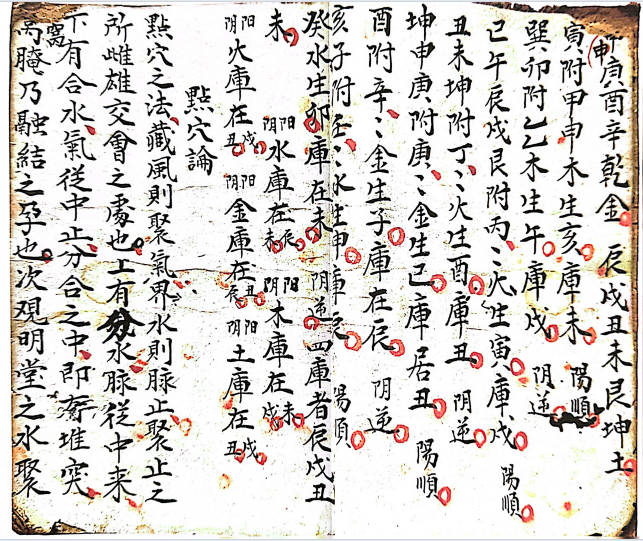 申庚酉辛乾金 辰戌丑未艮坤土
寅附甲申木生亥庫未 陽順
巽卯附乙乙木生午庫戌 阴逆
已午辰戌艮附丙〻火生寅庫戌 陽順
丑未坤附丁〻火生酉庫丑 阴逆
坤申庚附庚〻金生已庫居丑 陽順
酉附辛〻金生子庫在辰 阴逆
亥子附壬〻水生申庫辰 陽順
癸水生卯庫在未 阴逆 四庫者辰戌丑
未 陽阴水庫在辰未 陽阴木庫在未戌
陽阴火庫在戌丑 陽阴金庫在丑辰 陽阴土庫在戌丑
點穴論
點穴之法藏風則聚氣界水則脉止聚止之
所雌雄交會之處也上有分水脉從中来
下有合水氣從中止分合之中即堆突
窩腌乃融結之孕也次观明堂之水聚